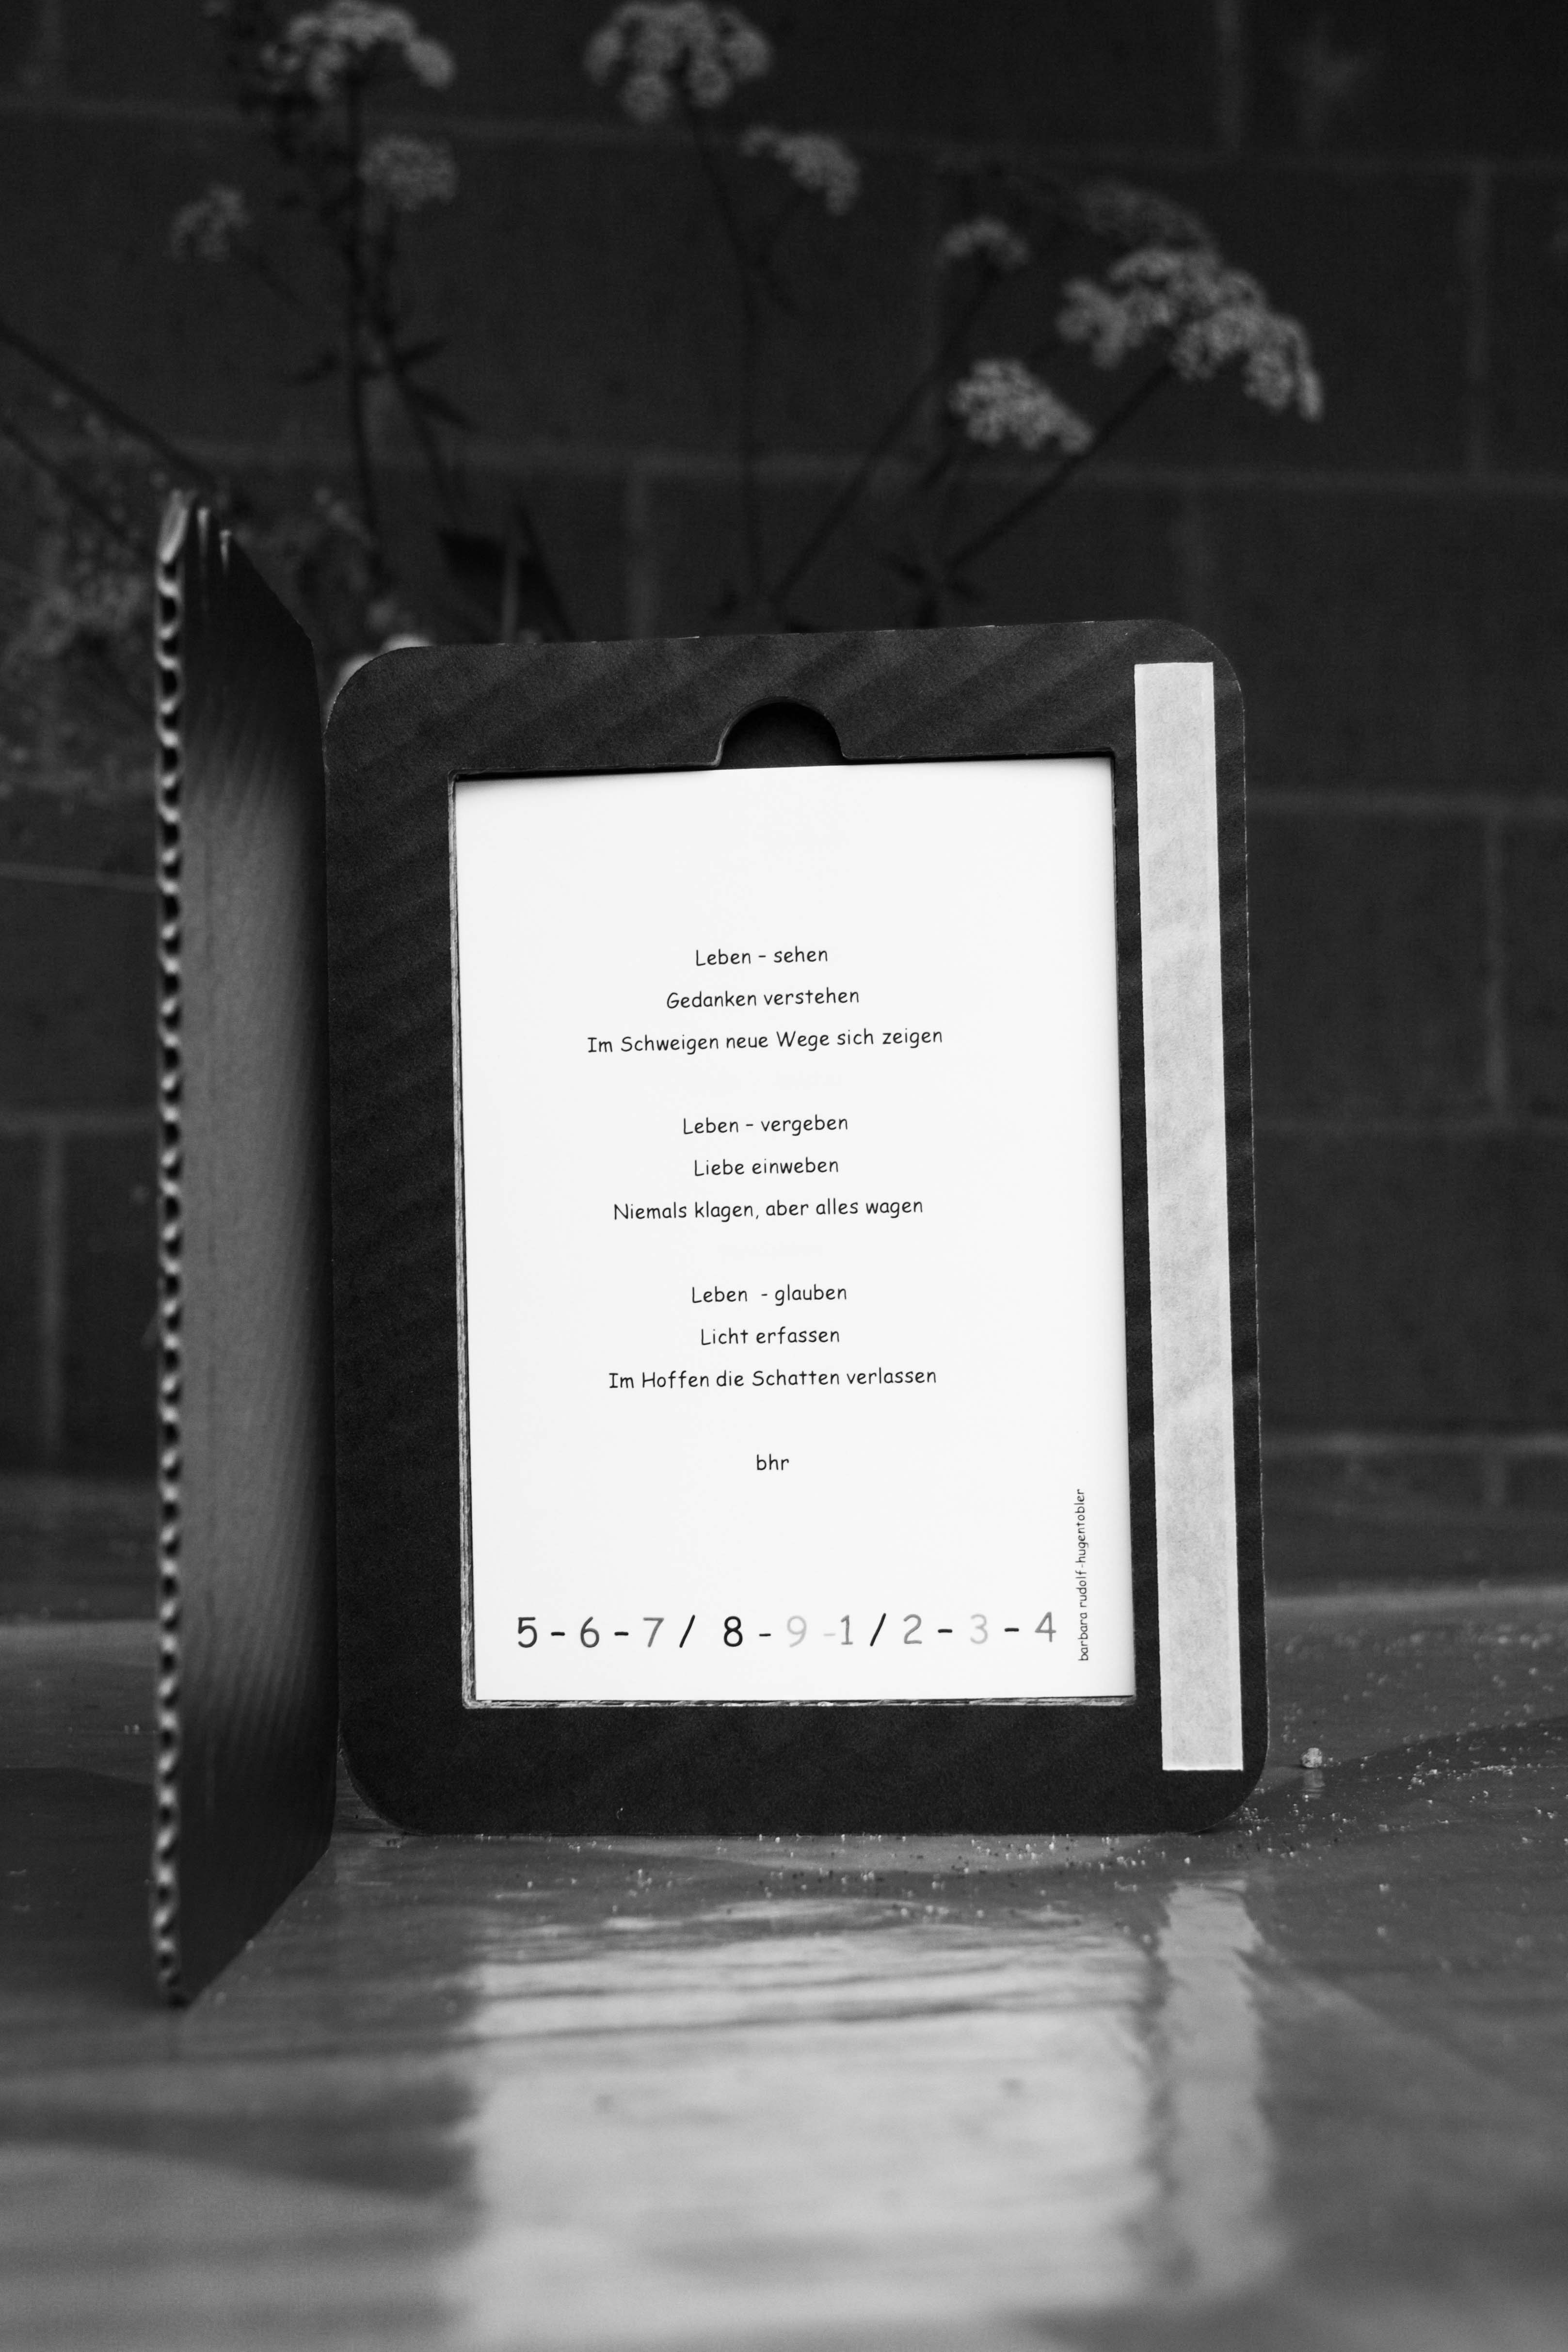 Leben - sehen
Gedanken verstehen
Im Schweigen neue Wege sich zeigen
Leben - vergeben
Liebe einweben
Niemals klagen, aber alles wagen
Leben - glauben
Licht erfassen
Im Hoffen die Schatten verlassen
bhr
5 - 6 - 7 / 8 - 9 -1 / 2 - 3 - 4
barbara rudolf-hugentobler